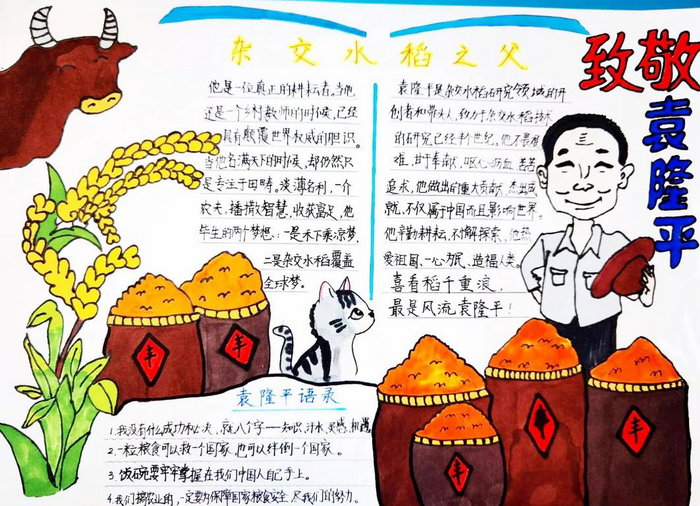 杂交水稻之父
致敬
袁隆平
他是一位真正的耕耘者。当他
还是一个乡村教师的时候,已经
具有颠覆世界权威的胆识。
当他名满天下的时候,却仍然只
是专注于田畴。淡薄名利,一介
农夫,播撒智慧,收获富足。他
毕生的两个梦想:一是禾下乘凉梦,
二是杂交水稻覆盖
全球梦。
袁隆平是杂交水稻研究领域的开
创者和带头人,致力于杂交水稻技术
的研究已经半世纪,他不畏艰
难,甘于奉献,呕心沥血,苦苦
追求,他做出的重大贡献,杰出成
就,不仅属于中国而且影响世界。
他辛勤耕耘,不懈探索,他热
爱祖国、一心为民、造福人类。
喜看稻千重浪,
最是风流袁隆平!
袁隆平语录
1.我没有什么成功秘决,就八个字——知识、汗水、灵感、机遇
2.一粒粮食可以救一个国家,也可以绊倒一个国家。
3.饭碗要牢牢掌握在我们中国人自己手上。
4.我们搞农业的,一定要为保障国家粮食安全尽我们的努力。
丰
丰
丰
丰